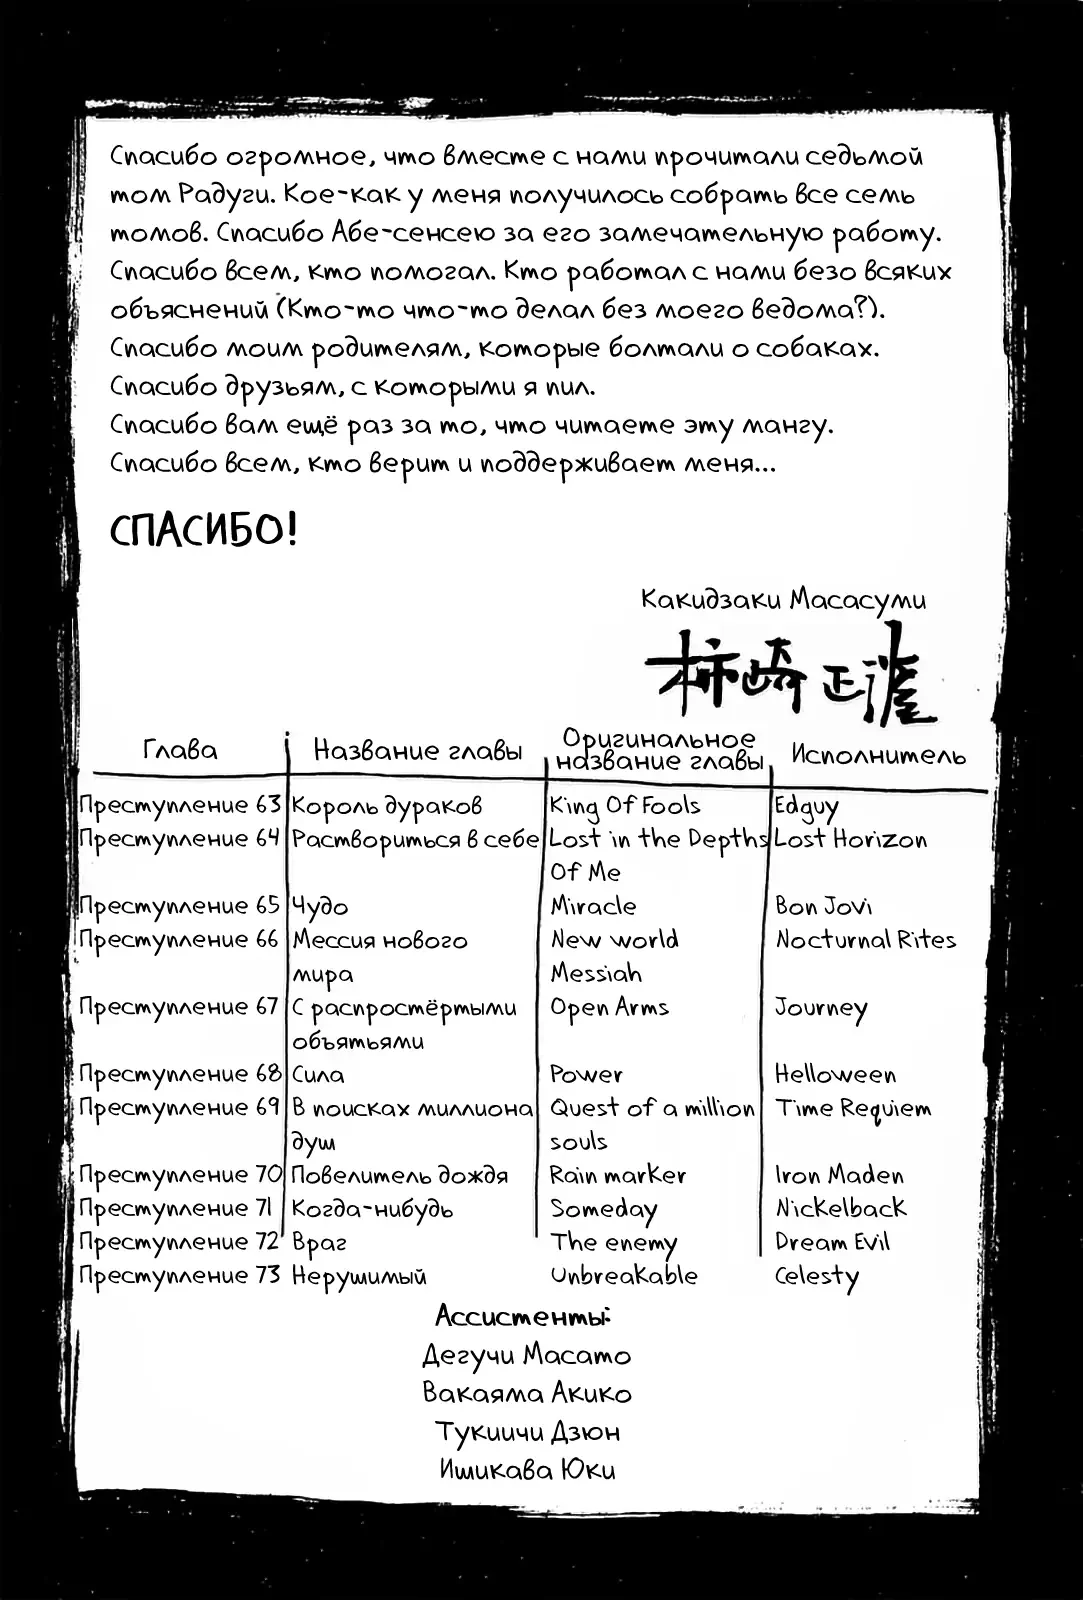 Спасибо огромное, что вместе с нами прочитали седьмой
том Радуги. Кое-как у меня получилось собрать все семь
томов. Спасибо Абе-сенсею за его замечательную работу.
Спасибо всем, кто помогал. Кто работал с нами безо всяких
объяснений (Кто-то что-то делал без моего ведома?).
Спасибо моим родителям, которые болтали о собаках.
Спасибо друзьям, с которыми я пил.
Спасибо вам ещё раз за то, что читаете эту мангу.
Спасибо всем, кто верит и поддерживает меня...
СПАСИБО!
Какидзаки Масасуми
柿崎正澄
Глава Название главы Оригинальное название главы Исполнитель
Преступление 63 Король дураков King Of Fools Edguy
Преступление 64 Раствориться в себе Lost in the Depths Lost Horizon
Of Me
Преступление 65 Чудо Miracle Bon Jovi
Преступление 66 Мессия нового New world Nocturnal Rites
мира Messiah
Преступление 67 С распростёртыми Open Arms Journey
объятьями
Преступление 68 Сила Power Helloween
Преступление 69 В поисках миллиона Quest of a million Time Requiem
душ souls
Преступление 70 Повелитель дождя Rain marker Iron Maden
Преступление 71 Когда-нибудь Someday Nickelback
Преступление 72 Враг The enemy Dream Evil
Преступление 73 Нерушимый Unbreakable Celesty
Ассистенты:
Дегучи Масато
Вакаяма Акико
Тукиичи Дзюн
Ишикава Юки